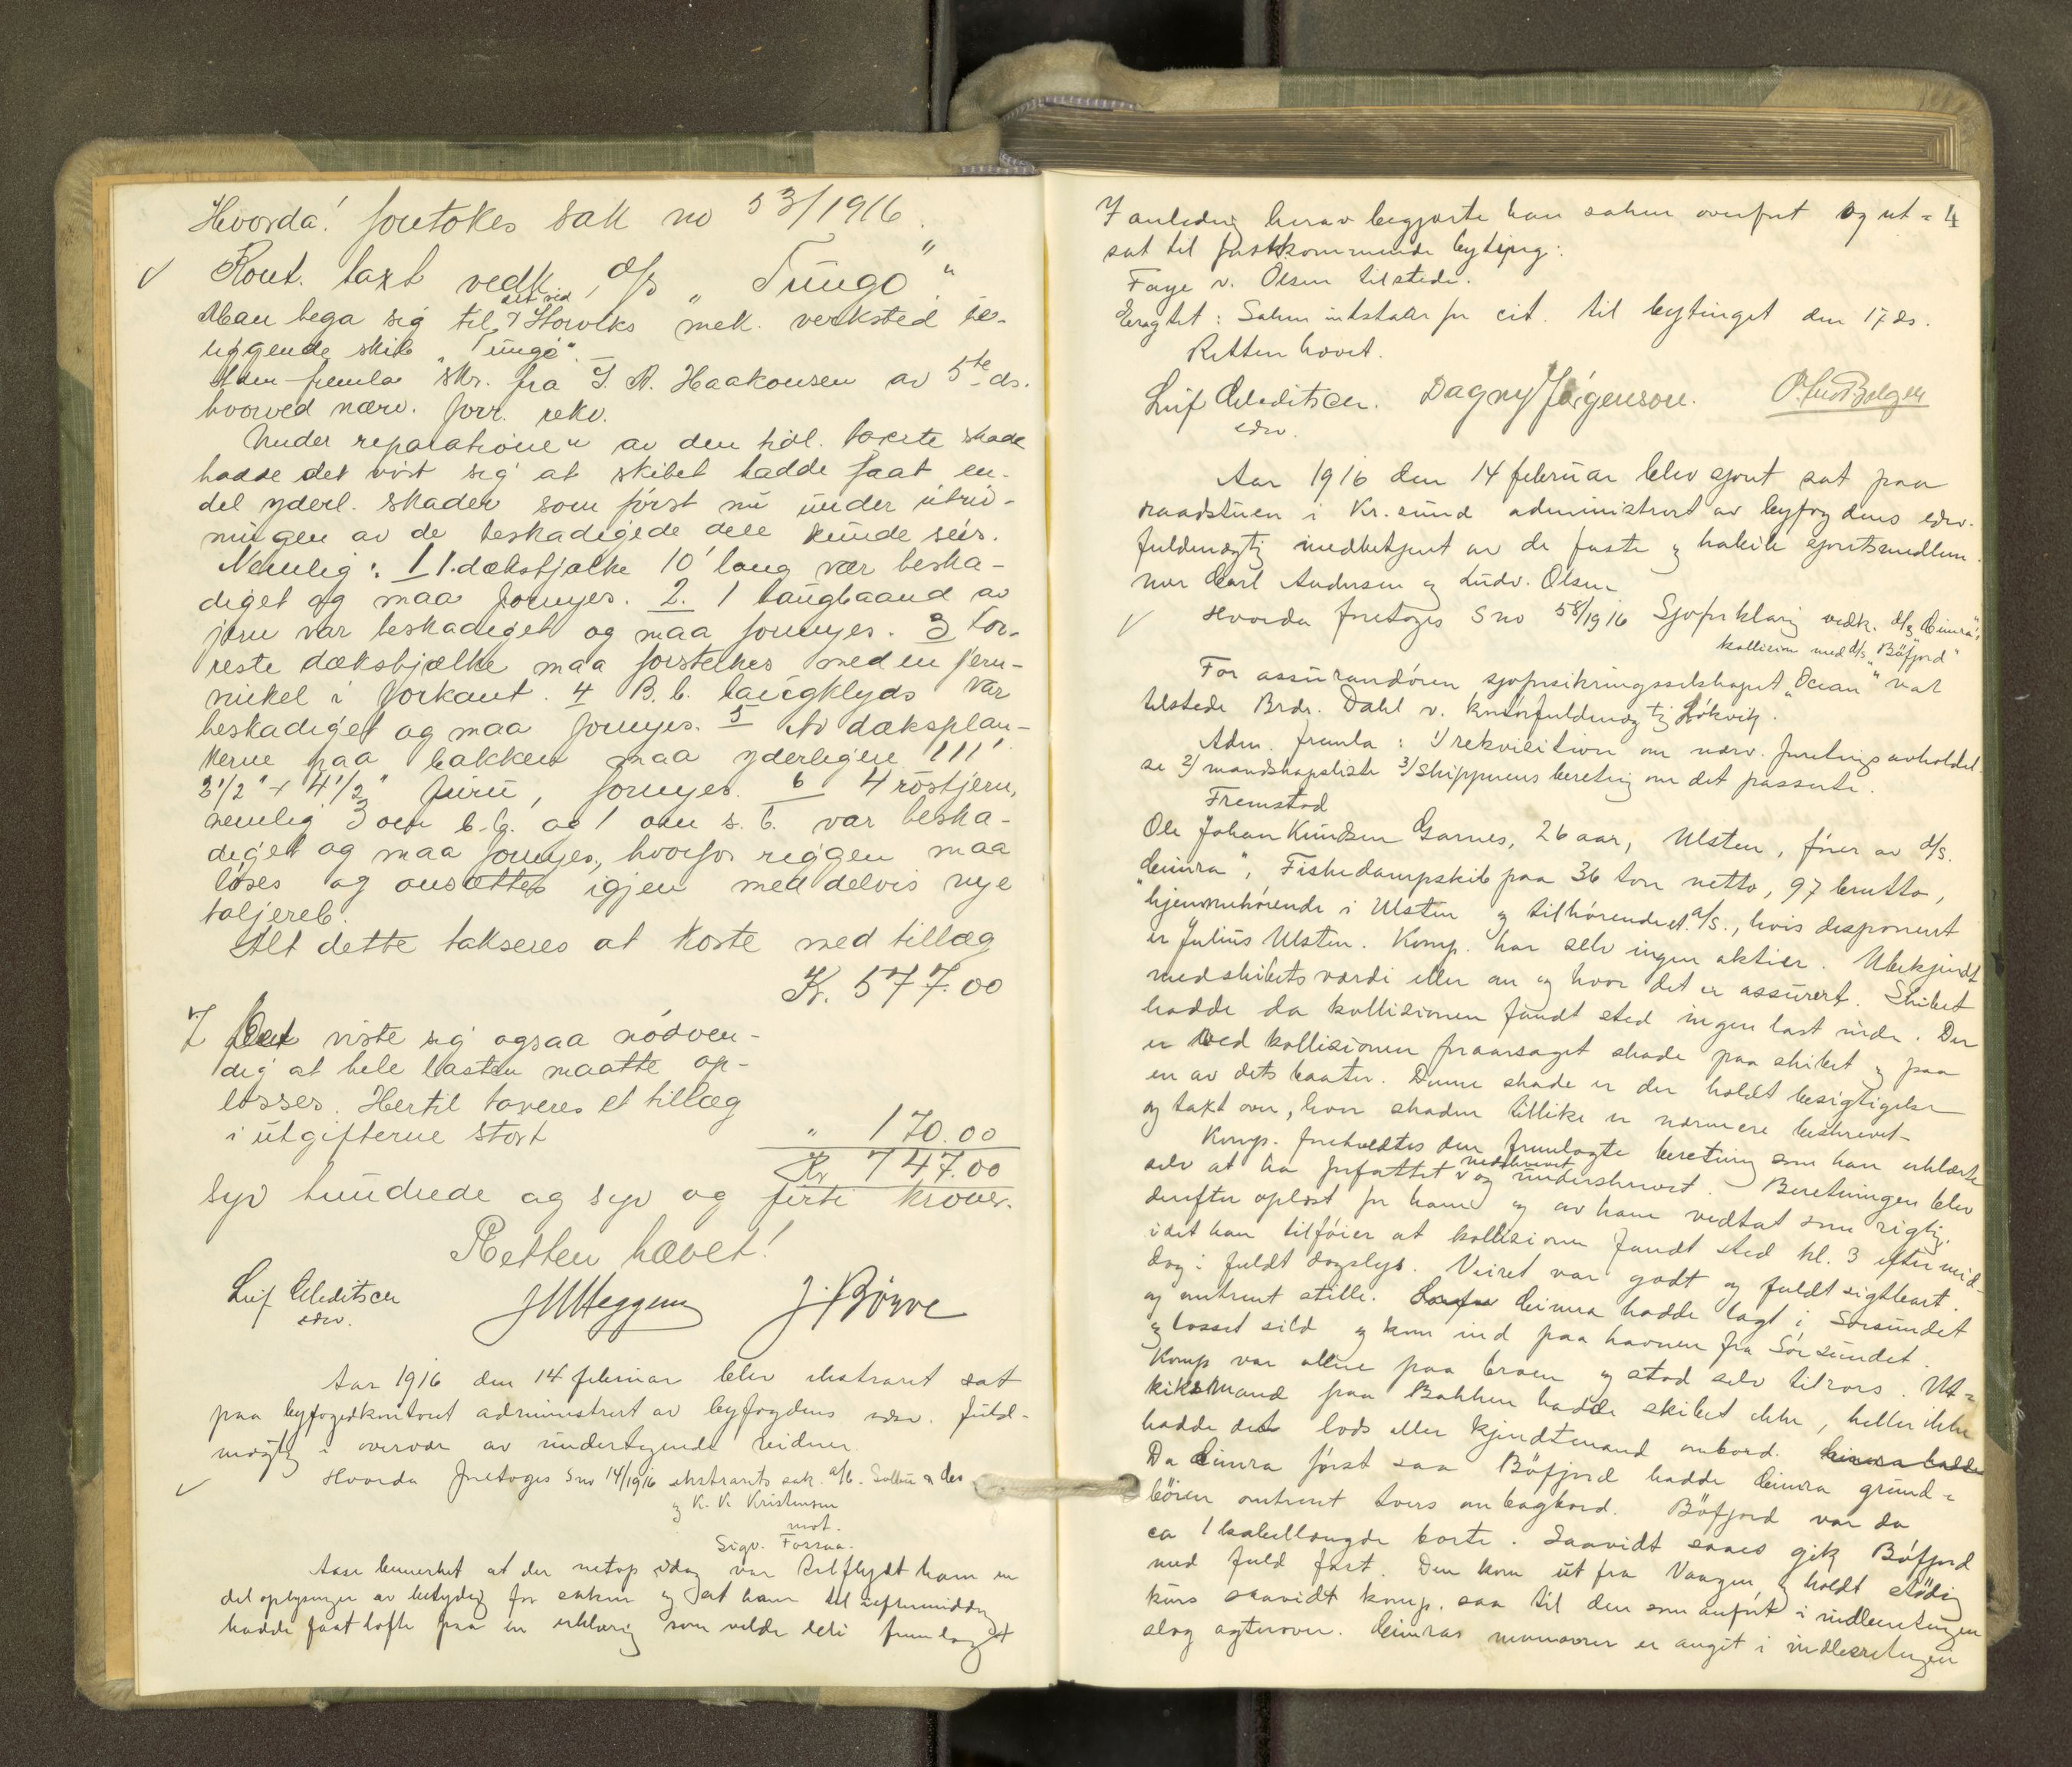 Hvorda! foretokes sak no 53/1916.
Kont. takt vedk. d/s "Tungö"
Man bega sig til det ved Storviks mek. verksted be-
liggende skib "Tungö".
Adm. fremla skr. fra I. A. Haakonsen av 5te ds.
hvorved nærv. forr. rekv.
Under reparationen av den tidl. takserte skade
hadde det vist sig at skibet hadde faat en-
del yderl. skader som först nu under utriv-
ningen av de beskadigede dele kunde sees.
Nemlig: 1 1. dæksbjælke 10' lang var beska-
diget og maa fornyes. 2. 1 baugbaand av
jern var beskadiget og maa fornyes. 3 For-
reste dæksbjælke maa forsterkes med en jern-
vinkel i forkant. 4 B.b. baugklyds var
beskadiget og maa fornyes. 5 Av dæksplan-
kerne paa bakken maa yderligere 111'
3 1/2" x 4 1/2" furu, fornyes. 6 4 röstjern,
nemlig 3 om b.b. og 1 om s.b. var beska-
diget og maa fornyes, hvorfor riggen maa
löses og ansættes igjen med delvis nye
taljereb.
Alt dette takseres at koste med tillæg
Kr. 577.00
7 Det viste sig ogsaa nödven-
dig at hele lasten maatte op-
losses. Hertil taxeres et tillæg
i utgifterne stort
" 170.00
Kr 747.00
Syv hundrede og syv og firti kroner.
Retten hævet!
Leif Melditsen
edsv.
J M Heggem
J. Börve
Aar 1916 den 14 februar blev ekstraret sat
paa byfogedkontoret administrert av byfogdens edsv. fuld-
mægtig i overvær av undertegnede vidner.
Hvorda foretoges S no 14/1916 ekstrarets sak a/b.
og K. K. Kristensen
mot.
Sigv. Forsaa.
Aase bemerket at der netop idag var tilflydt ham en
del oplysninger av betydning for saken og at ham til eftermiddag
hadde faat löfte paa en erklæring som vilde bli fremlagt
4
I anledning herav begjærte han saken overfört og ut-
sat til förstkommende byting:
Faye v. Olsen tilstede.
Eragtet: Saken indstaller for cit. til bytinget den 17 ds.
Retten hævet.
Leif Melditsen.
edsv.
Dagny Jörgenson.
Aar 1916 den 14 februar blev sjöret sat paa
raadstuen i Kr. sund administrert av byfogdens edsv.
fuldmægtig medbetjent av de faste og habile sjöretsmedlem-
mer Carl Andersen og Ludv. Olsen
Hvorda foretoges S no 58/1916 Sjöforklaring vedk. d/s "Cimra"s
kollision med d/s "Böfjord"
For assurandören sjöforsikringsselskapet "Ocean" var
tilstede Brdr. Dahl v. kontorfuldmægtig Lökvik.
Adm. fremla: 1) rekvisition om nærv. forretnings avholdel-
se 2) mandskapsliste 3) skipperens beretning om det passerte.
Fremstod
Ole Johan Knudsen Garnes, 26 aar, Ulsten, förer av d/s.
"Cimra", Fiskedampskib paa 36 ton netto, 97 brutto,
hjemmehörende i Ulsten og tilhörende et a/s., hvis disponent
er Julius Ulsten. Komp. har selv ingen aktier. Ubekjendt
med skibets værdi eller om og hvor det er assurert. Skibet
hadde da kollisionen fandt sted ingen last inde. Der
er ved kollisionen foraarsaget skade paa skibet og paa
en av dets baater. Denne skade er der holdt besigtigelse
og takt over, hvor skaden tillike er nærmere beskrevet.
Komp. foreholdtes den fremlagte beretning som han erklærte
selv at ha forfattet nedskrevet og underskrevet. Beretningen blev
derefter oplæst for ham og av ham vedtat som rigtig.
idet han tilföier at kollisionen fandt sted kl. 3 eftermid-
dag i fuldt dagslys. Veiret var godt og fuldt sigtbart.
og omtrent stille. Cimra hadde lagt i Sörsundet
og losset sild og kom ind paa havnen fra Sörsundet.
Komp var alene paa broen og stod selv tilrors. Ut-
kiksmand paa Bakken hadde skibet ikke, heller ikke
hadde det lods eller kjendtmand ombord. Cimra hadde
Da Cimra först saa Böfjord hadde Cimra grund-
böien omtrent tvers om bagbord. Böfjord var da
ca 1 kabellængde borte. Saavidt saaes gik Böfjord
med fuld fart. Den kom ut fra Vaagen og holdt stödig
kurs saavidt komp. saa til den som anfört i indberetningen
slog agterover. Cimras manövrer er angit i indberetningen